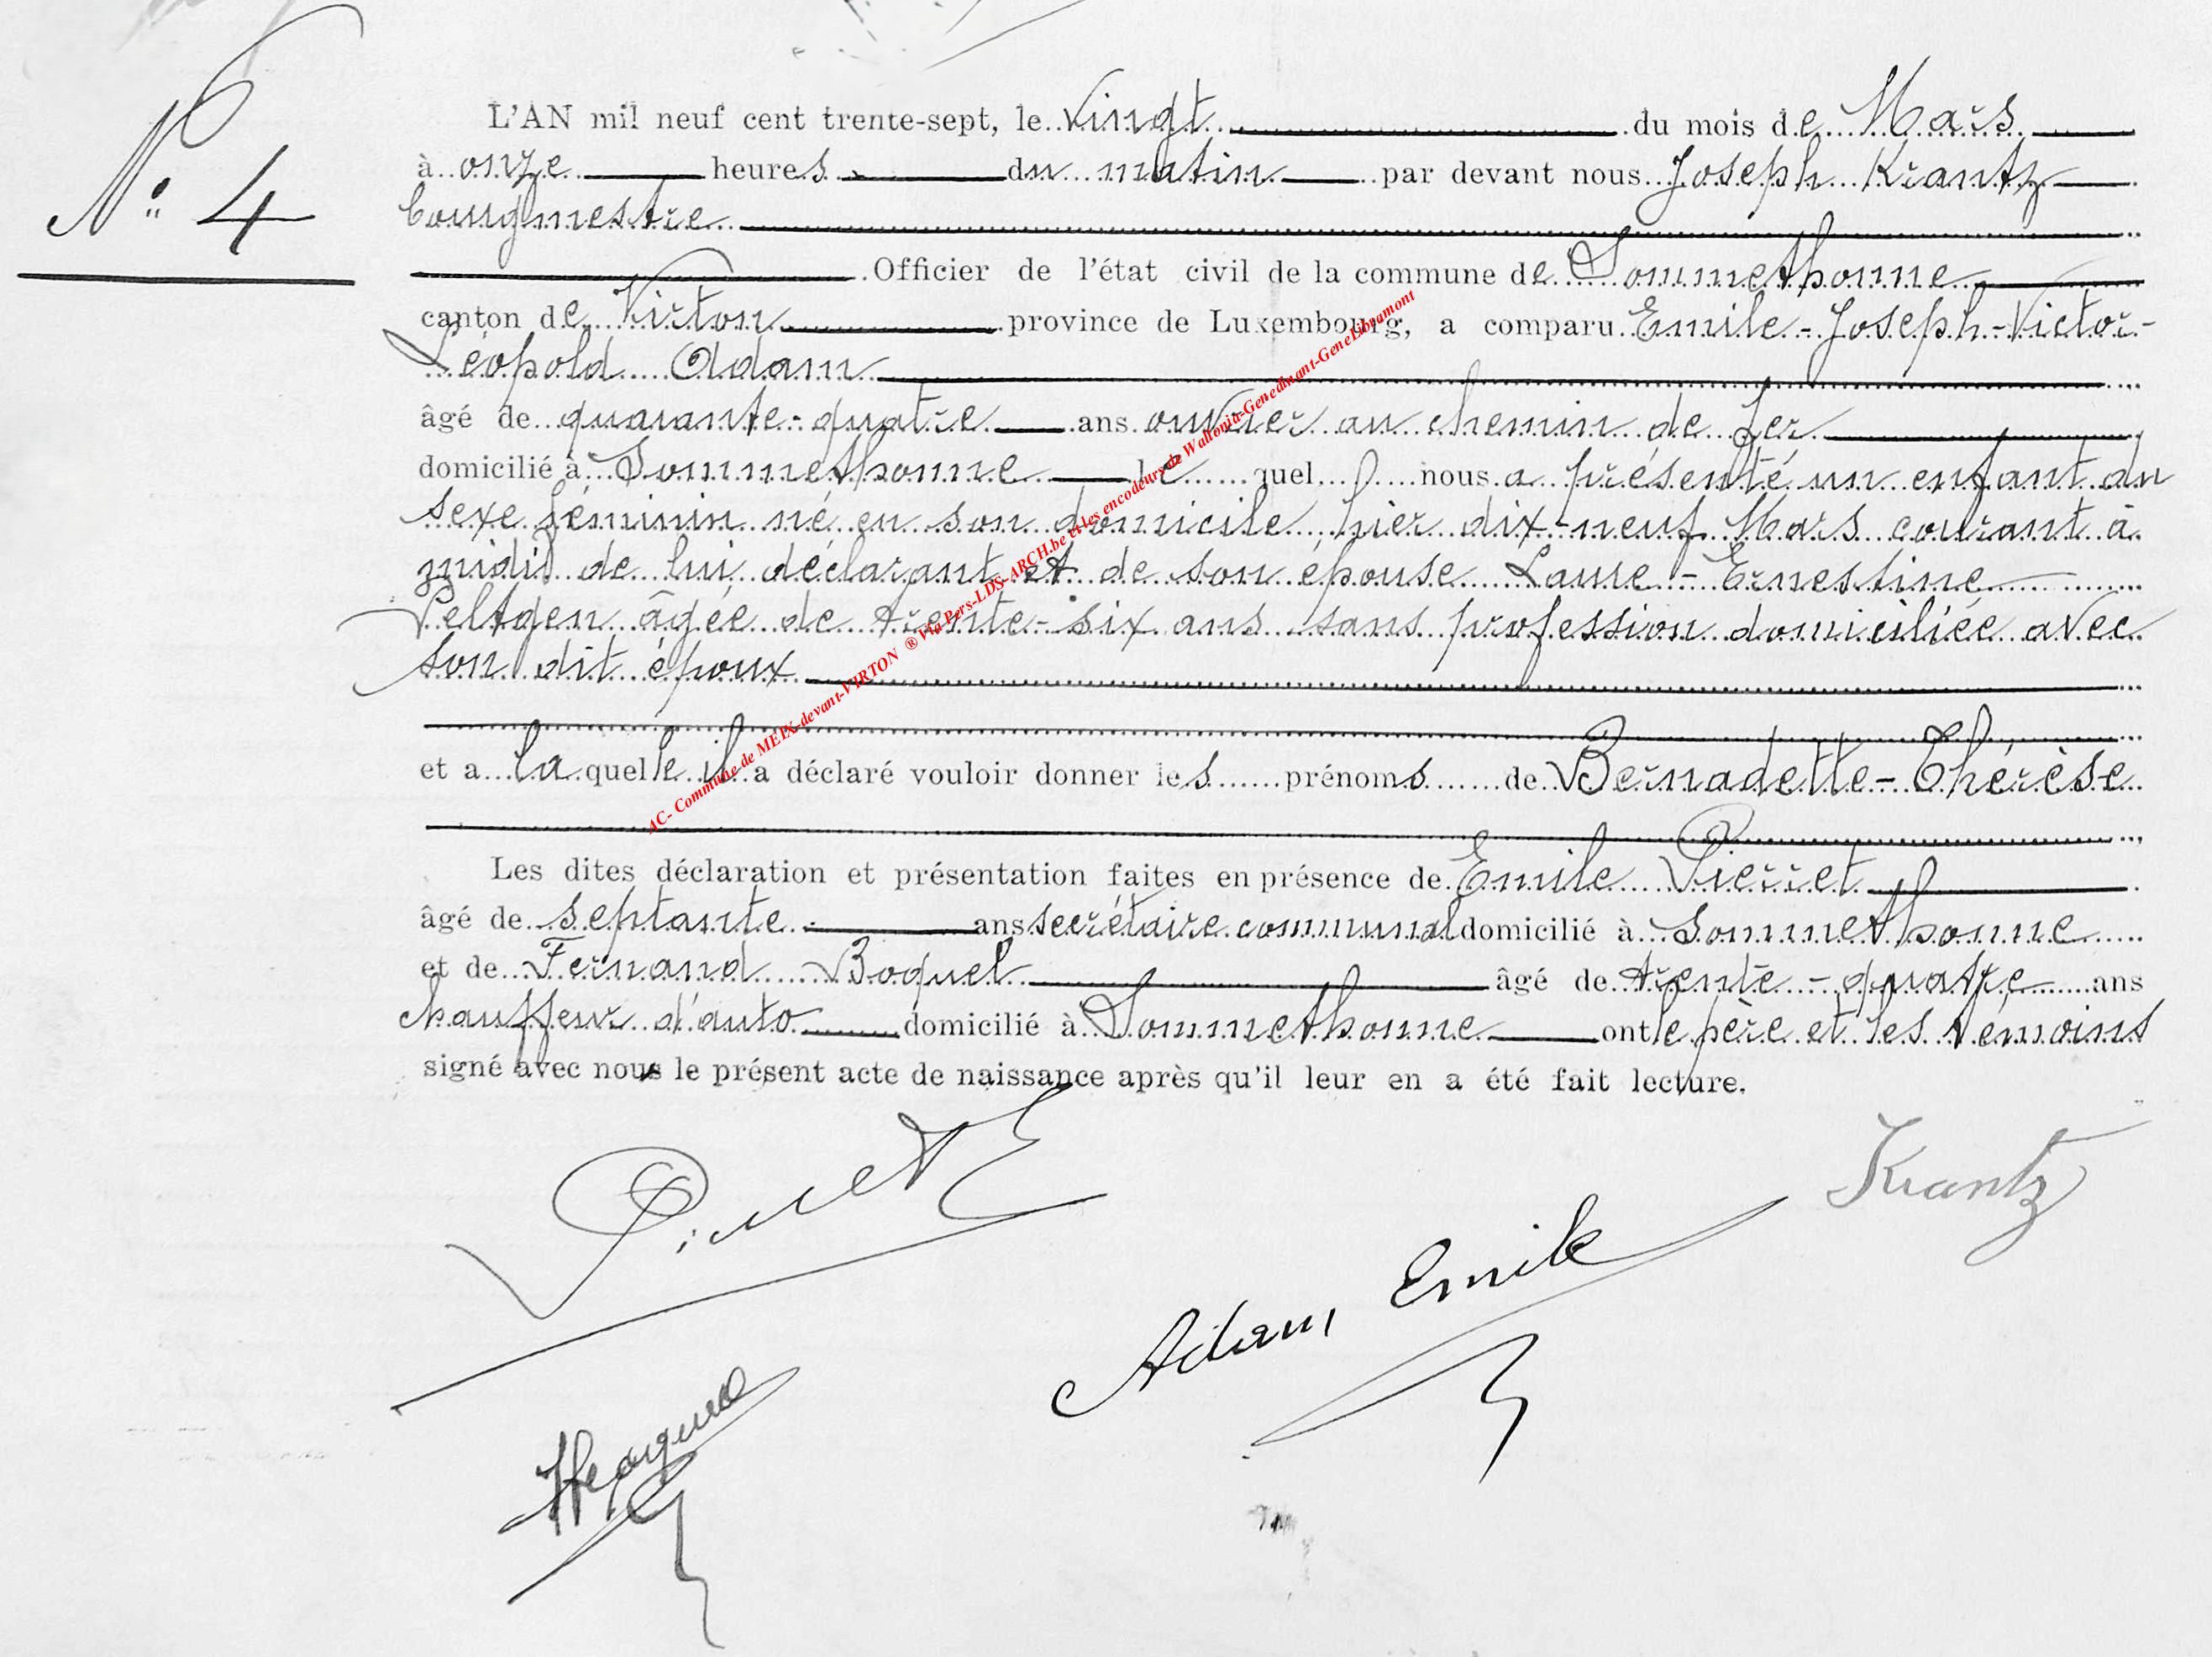 N° 4
L'AN mil neuf cent trente-sept, le vingt du mois de Mars
à onze heures du matin par devant nous Joseph Krantz
bourgmestre
Officier de l'état civil de la commune de Sommethonne
canton de Virton province de Luxembourg, a comparu Emile-Joseph-Victor-
Léopold Adam
âgé de quarante-quatre ans ouvrier au chemin de fer
domicilié à Sommethonne lequel nous a présenté un enfant du
sexe féminin né en son domicile, hier dix-neuf Mars courant à
midi de lui déclarant et de son épouse Laure-Ernestine
Peltgen âgée de trente-six ans sans profession domiciliée avec
son dit époux
et a laquelle il a déclaré vouloir donner les prénoms de Bernadette-Thérèse
Les dites déclaration et présentation faites en présence de Emile Pierret
âgé de septante ans secrétaire communal domicilié à Sommethonne
et de Fernand Boquel âgé de trente-quatre ans
chauffeur d'auto domicilié à Sommethonne ont le père et les témoins
signé avec nous le présent acte de naissance après qu'il leur en a été fait lecture.
Pierret E
Krantz
Adam Emile
AC- Commune de MEIX-devant-VIRTON ® Via Pers-LDS-ARCH.be et les encodeurs de Wallonia-Genedinant-GeneLibramont